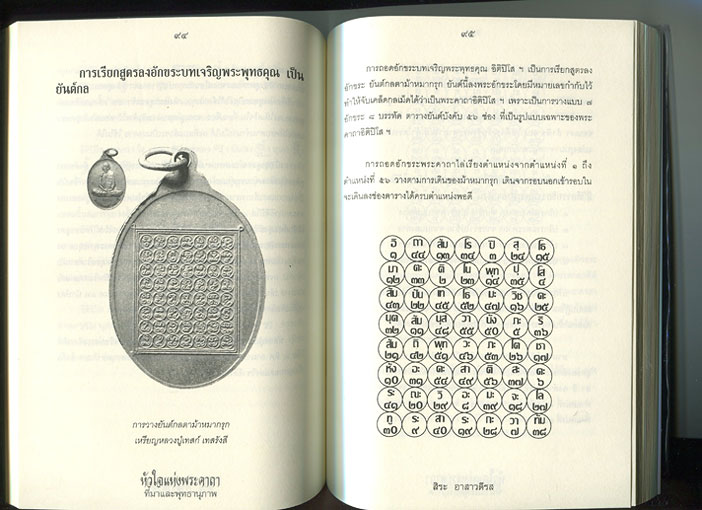 ๙๔
การเรียกสูตรลงอักขระบทเจริญพระพุทธคุณ เป็น
ยันต์กล
การวางยันต์กลตาม้าหมากรุก
เหรียญหลวงปู่เทสก์ เทสรังสี
หัวใจแห่งพระคาถา
ที่มาและพุทธานุภาพ
๙๕
การถอดอักขระบทเจริญพระพุทธคุณ อิติปิโส ฯ เป็นการเรียกสูตรลง
อักขระ ยันต์กลตาม้าหมากรุก ยันต์นี้ลงพระอักขระโดยมีหมายเลขกำกับไว้
ทำให้จับเคล็ดกลเม็ดได้ว่าเป็นพระคาถาอิติปิโส ฯ เพราะเป็นการวางแบบ ๗
อักขระ ๘ บรรทัด ตารางยันต์บังคับ ๕๖ ช่อง ที่เป็นรูปแบบเฉพาะของพระ
คาถาอิติปิโส ฯ
การถอดอักขระพระคาถาไล่เรียงตำแหน่งจากตำแหน่งที่ ๑ ถึง
ตำแหน่งที่ ๕๖ วางตามการเดินของม้าหมากรุก เดินจากรอบนอกเข้ารอบใน
จะเดินลงช่องตารางได้ครบตำแหน่งพอดี
อิ กา สัม โร ปิ สุ โธ
๑ ๔๔ ๑๓ ๓๔ ๓ ๒๔ ๑๕
มา คะ ติ โน พุท ปุ โส
๑๒ ๓๓ ๒ ๒๓ ๑๔ ๓๕ ๔
สัม ปัน เท โธ มะ วิช คะ
๔๓ ๒๒ ๔๕ ๕๒ ๔๗
นุต สัม นุส วา นัง กะ ริ
๓๒ ๑๑ ๕๕ ๕๐ ๕ ๓๖
สัม ถิ พุท วะ กะ โต ชา
๒๑ ๔๒ ๕๑ ๔๖ ๕๓ ๒๖ ๑๗
หัง อะ คะ สา ติ สะ คะ
๑๐ ๓๑ ๕๔ ๔๙ ๕๖ ๖
ระ ณะ วิ อะ มะ จะ โล
๔๑ ๒๐ ๒๙ ๘ ๓๙ ๑๘ ๒๗
ทู ระ สา ระ กะ วา ทัม
๓๐ ๙ ๔๐ ๑๙ ๒๘ ๗ ๓๘
สิระ อาสาวดีรส